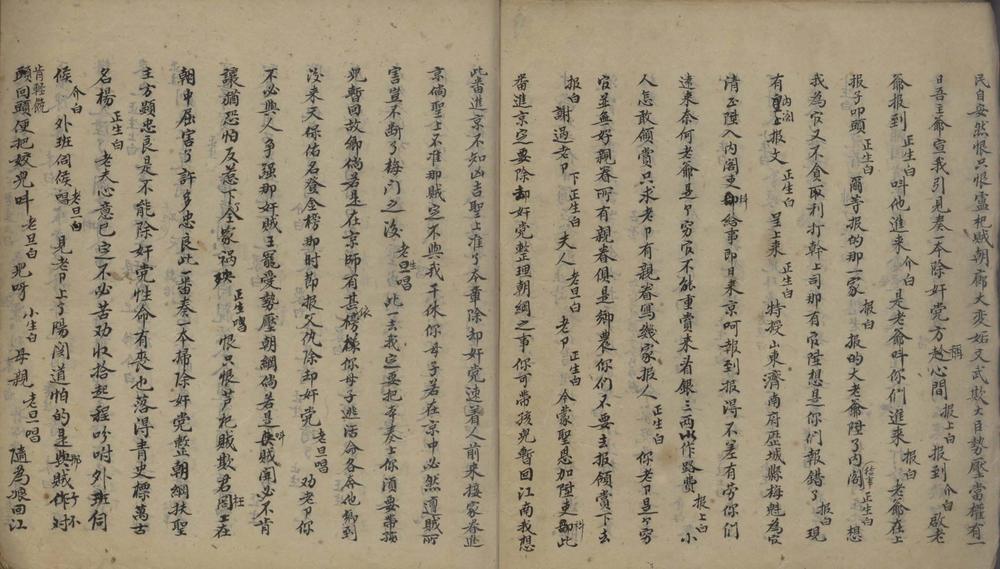 民自安然恨只恨盧杞賊朝廊大変妬文武欺大臣勢壓當權有一
日吾主爺宣我引見奏一本除奸党方趁心間 报上白 报到 介白 啟老
爺报到 正生白 呌他進來 介白 是老爺呌你們進来 报白 老爺在上
报子叩頭 正生白 爾等报的那一家 报白 报的大老爺陞了内阁 正生白 想
我為官又不貪取利打幹上司那有官陞想是你們报錯了 报白 現
有内阁上报文 正生白 呈上来 正生白 特授山東濟南府歴城縣梅魁為官
清正陞入内阁吏科給事即日来京呵報到报得不差有劳你們
遠来奈何老爺是个穷官不能重賞来有銀三两以作路費 报上白 小
人怎敢領賞只求老卩有親眷寫幾家报人 正生白 你老卩是个穷
官並無好親眷所有親眷俱是鄉農你們不要去报領賞下去
报白 謝過老卩 下正生白 夫人 老旦白 老卩 正生白 今蒙聖恩加陞吏科此
番進京定要除却奸党整理朝綱之事你可帶孩兒暫回江南我想
此番進京不知凶吉聖上准了本章除却奸党速着人前来接家眷進
京倘聖上不准那賊定不與我干休你母子若在京中必然遭賊所
害豈不断了梅门之後 老旦唱 生 此一去我定要把本奏上你須要帶孩
兒暫回故鄉倘若是在京師有甚榜樣你母子逃活命各奔他鄉到
後来天保佑名登金榜那时節报父仇除却奸党 老旦唱 劝老卩你
不必與人争强那奸賊王寵愛勢壓朝綱倘若是呌賊聞必不肯
讓猶恐怕反惹下全家祸殃 正生唱 恨只恨芦杞賊欺君罔上在
朝中屈害了許多忠良此一番奏一本掃除奸党整朝綱扶聖
主方顕忠良是不能除奸党性命有丧也落得青史標萬古
名楊 正生白 老夫心意已定不必苦劝收拾起程吩咐外班伺
候 介白 外班伺侯 老旦白 唱 見老卩上了陽関道怕的是與賊作对
頭回頭便把姣兒呌 老旦白 兒呀 小生白 母親 老旦唱 隨為娘回江